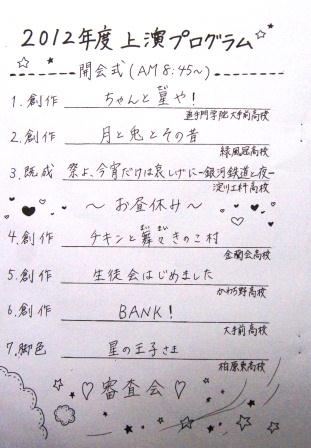 2012年度 上演プログラム
開会式 (AM 8:45~)
1. 創作 ちゃんと星や!
追手門学院大手前高校
2. 創作 月と兎とその昔
緑風冠高校
3. 既成 祭よ、今宵だけは哀しげに-銀河鉄道と夜-
淀川工科高校
~ お昼休み ~
4. 創作 チキンと舞々きのこ村
まい まい
金蘭会高校
5. 創作 生徒会はじめました
かわち野高校
6. 創作 BANK!
大手前高校
7. 脚色 星の王子さま
柏原東高校
♡ 審査会 ♡